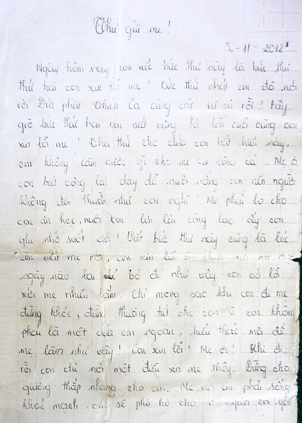 Thư gửi mẹ!
2-11-2012
Ngày hôm nay con viết bức thư này là bức thư
thứ hai con xin lỗi mẹ! Bức thư nhất con đã nói
với Đức phật Thiên Chúa cũng các sư cô rồi! Bây
giờ bức thư hai con viết cũng là lần cuối cùng con
xin lỗi mẹ! Tha thứ cho đứa con bất hiếu này,
con không làm được gì cho mẹ vui lòng cả. Mẹ ơi
con biết công cha dạy dỗ nuôi nấng con nên người
không đơn thuần như con nghĩ. Mẹ phải lo cho
con ăn học, nuôi con lớn lên công lao ấy con
ghi nhớ suốt đời! Viết bức thư này cũng là lúc
con mất mẹ rồi con xin lỗi
ngày nào bé đi như vậy con có lỗi
với mẹ nhiều lắm. Chỉ mong sao khi con đi mẹ
đừng khóc, đừng thương tiếc cho con vì con không
phải là một đứa con ngoan, hiếu thảo mà để
mẹ làm như vậy! Con xin lỗi! Mẹ ơi! Khi đi
rồi con chỉ nói một điều xin mẹ thôi. Đừng cho
quàng thắp nhang cho con. Mẹ phải sống
khỏe mạnh con sẽ phù hộ cho người con yêu